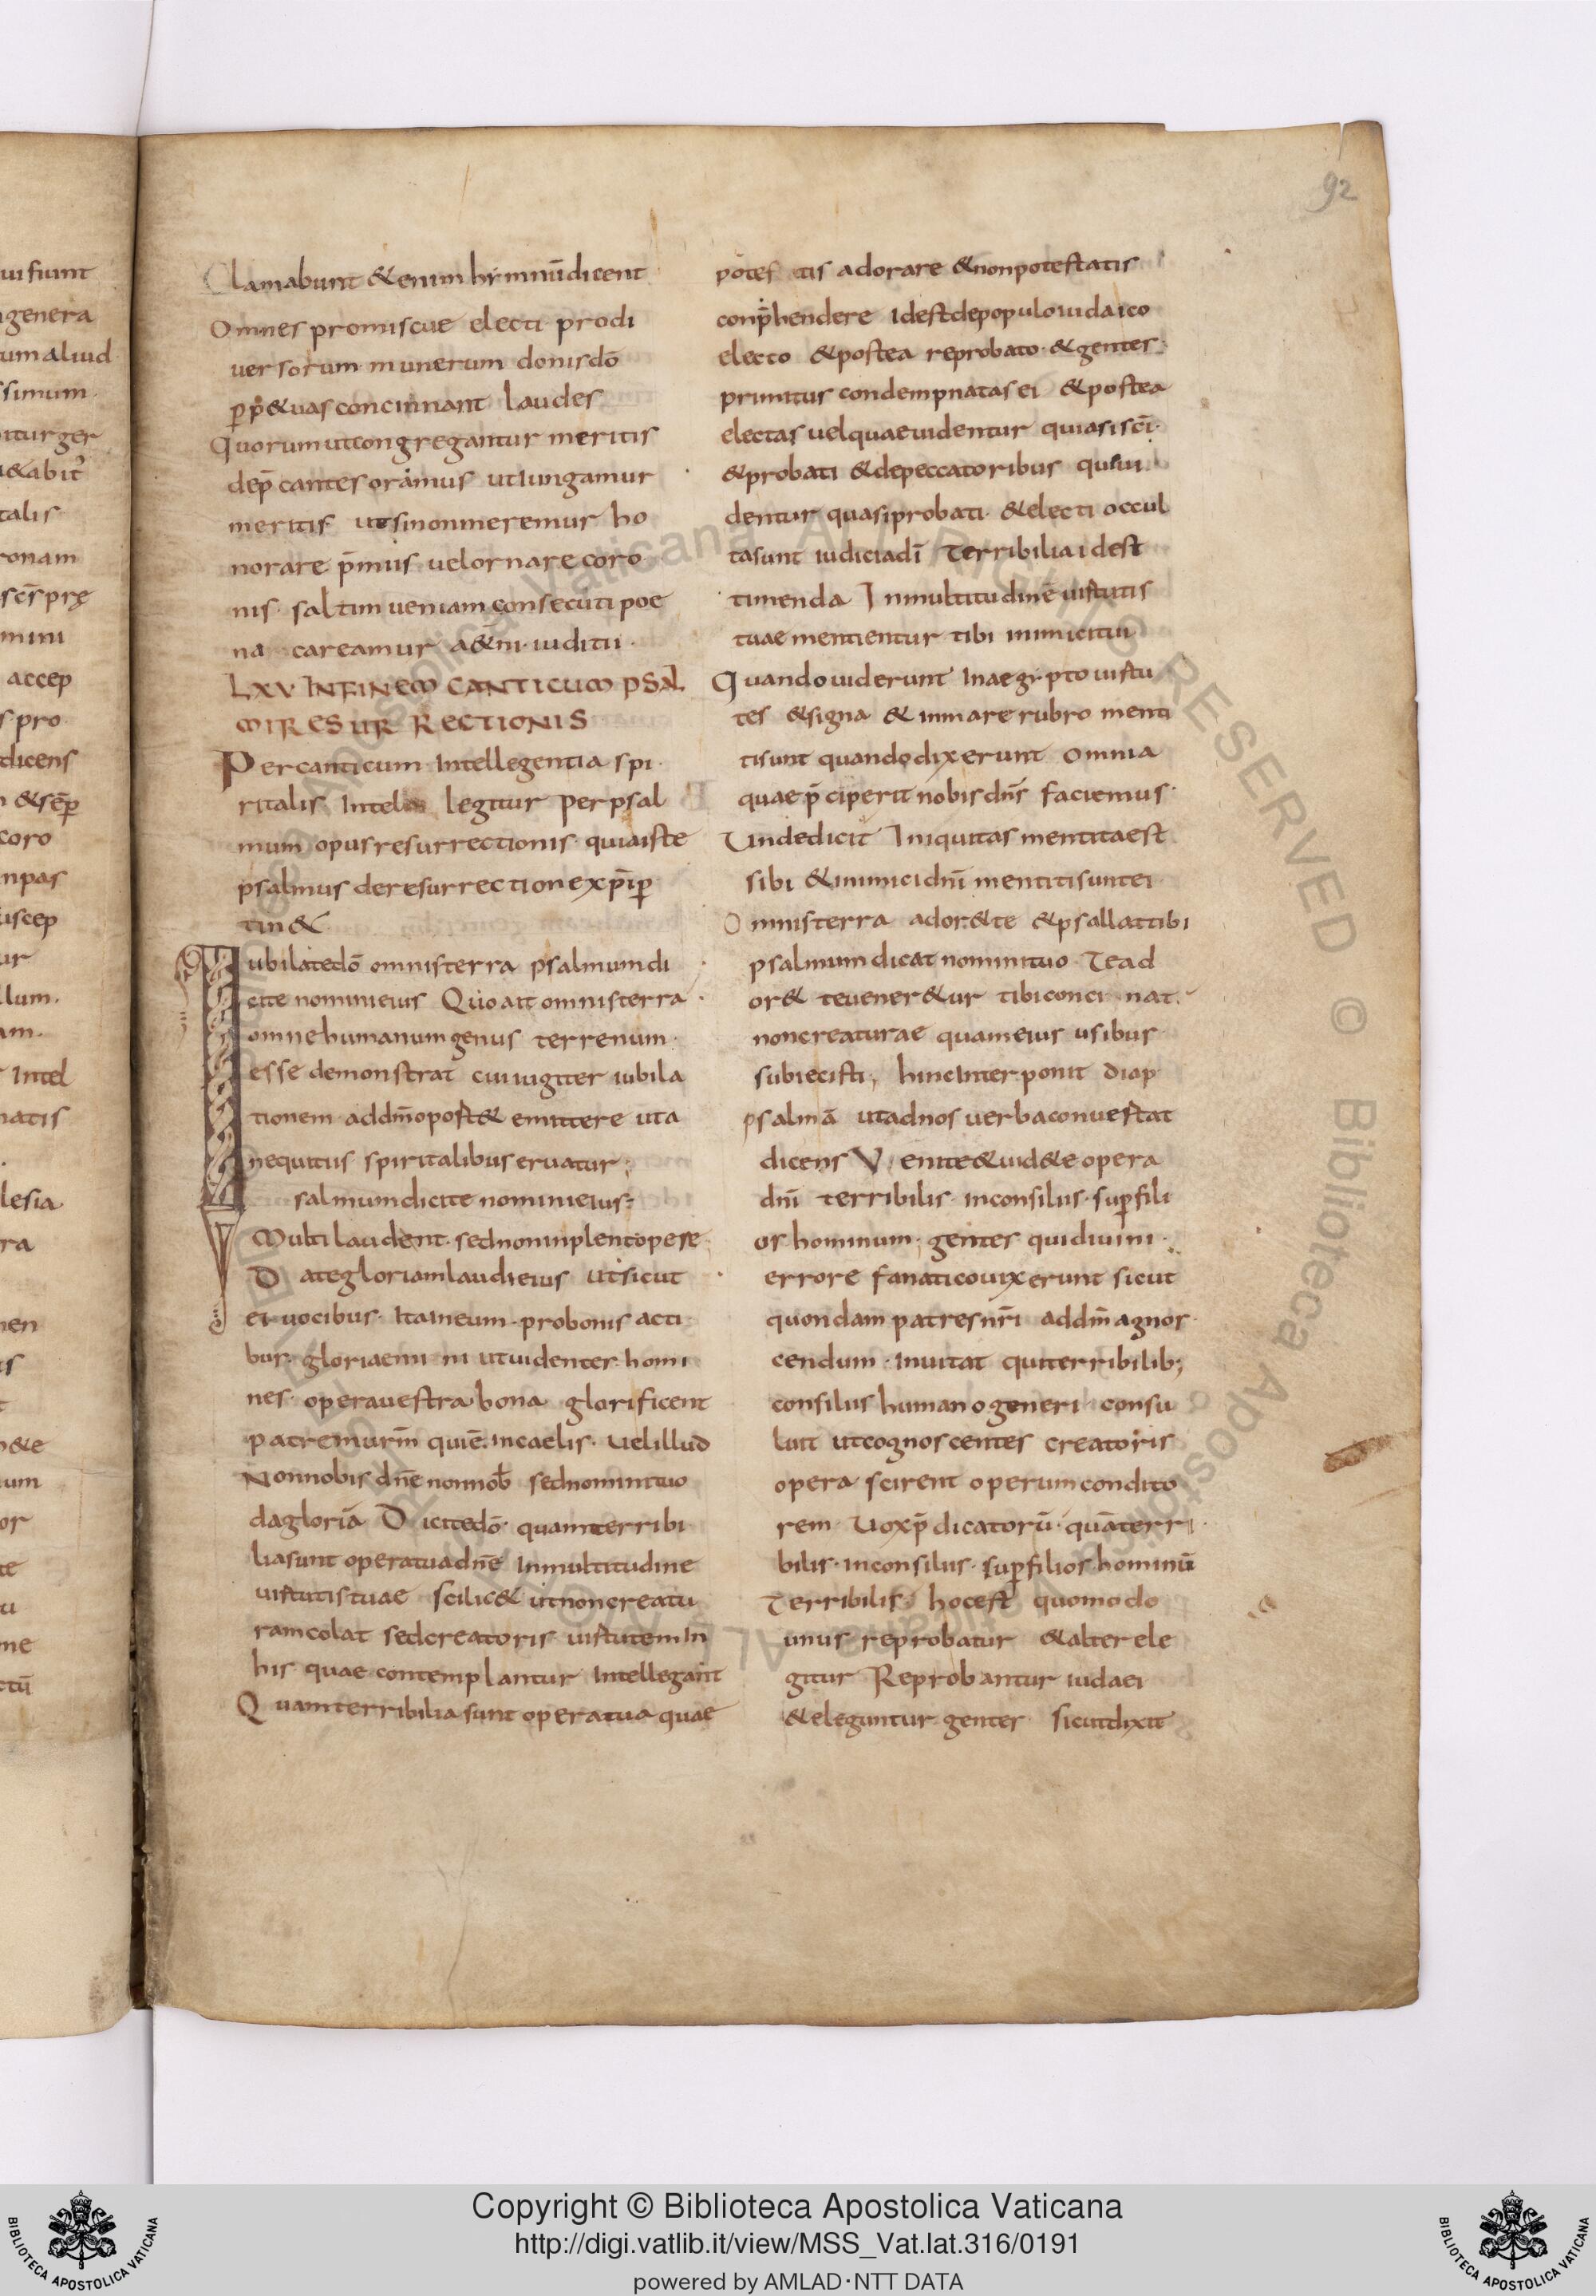 92
Clamabunt &enim hẏmnū dicent
Omnes promiscue electi prodi
uersorum munerum donis dō
concinnant laudes
Quorum ut congregantur meritis
dep̄cantes oramus ut iungamur
meritis ut si non meremur ho
norare p̄miis uel ornare coro
nis saltim ueniam consecuti poe
na careamur a&̄ni iuditii
LXV IN FINEM CANTICUM PSAL
MI RESURRECTIONIS
Per canticum intellegentia spi
ritalis legitur per psal
mum opus resurrectionis quia iste
psalmus de resurrectione xp̄i p
tin&
Iubilate dō omnis terra psalmum di
cite nomini eius Quo ait omnis terra
omne humanum genus terrenum
esse demonstrat cui iugiter iubila
tionem ad dm̄ oport& emittere ut a
nequitiis spiritalibus eruatur
salmum dicite nomini eius
Multi laudent sed non inplent opere
Date gloriam laudi eius ut sicut
ei uocibus ita in eum pro bonis acti
bus gloriae ut uidentes homi
nes opera uestra bona glorificent
patrem urm̄ qui ē in caelis uel illud
Non nobis dn̄e non nob̄ sed nomini tuo
da gloriā Dicite dō quam terribi
lia sunt opera tua dn̄e In multitudine
uirtutis tuae scilic& ut non creatu
ram colat sed creatoris uirtutem in
his quae contemplantur intellegant
Quam terribilia sunt opera tua quae
potestis adorare & non potestatis
conp̄hendere id est de populo iudaico
electo & postea reprobato & gentes
primitus condempnatas ei & postea
electas uel quae uidentur quasi sc̄i
& probati & de peccatoribus qui ui
dentur quasi probati & electi occul
ta sunt iudicia dī Terribilia id est
timenda In multitudinē uirtutis
tuae mentientur tibi inimici tui
Quando uiderunt in aegypto uirtu
tes & signa & in mare rubro menti
ti sunt quando dixerunt omnia
quae p̄ciperit nobis dn̄s faciemus
Unde dicit Iniquitas mentita est
sibi & inimici dn̄i mentiti sunt ei
Omnis terra ador& te & psallat tibi
psalmum dicat nomini tuo Te ad
or& te uener&ur tibi concinat
non creaturae quam eius usibus
subiecisti, hinc interponit diap
psalmā ut ad nos uerba conuertat
dicens Uenite & uid&e opera
dn̄i terribilis in consiliis sup fili
os hominum gentes qui diuini
errore fanatico uixerunt sicut
quondam patres nr̄i ad dm̄ agnos
cendum inuitat qui terribilib;
consiliis humano generi consu
luit ut cognoscentes creatoris
opera scirent operum condito
rem Uox p̄dicatorū quā terri
bilis in consiliis sup filios hominū
Terribilis hoc est quomodo
unus reprobatur & alter ele
gitur Reprobantur iudaei
& eleguntur gentes sicut dixit
Copyright © Biblioteca Apostolica Vaticana
http://digi.vatlib.it/view/MSS_Vat.lat.316/0191
powered by AMLAD·NTT DATA
BIBLIOTECA APOSTOLICA VATICANA
BIBLIOTECA APOSTOLICA VATICANA